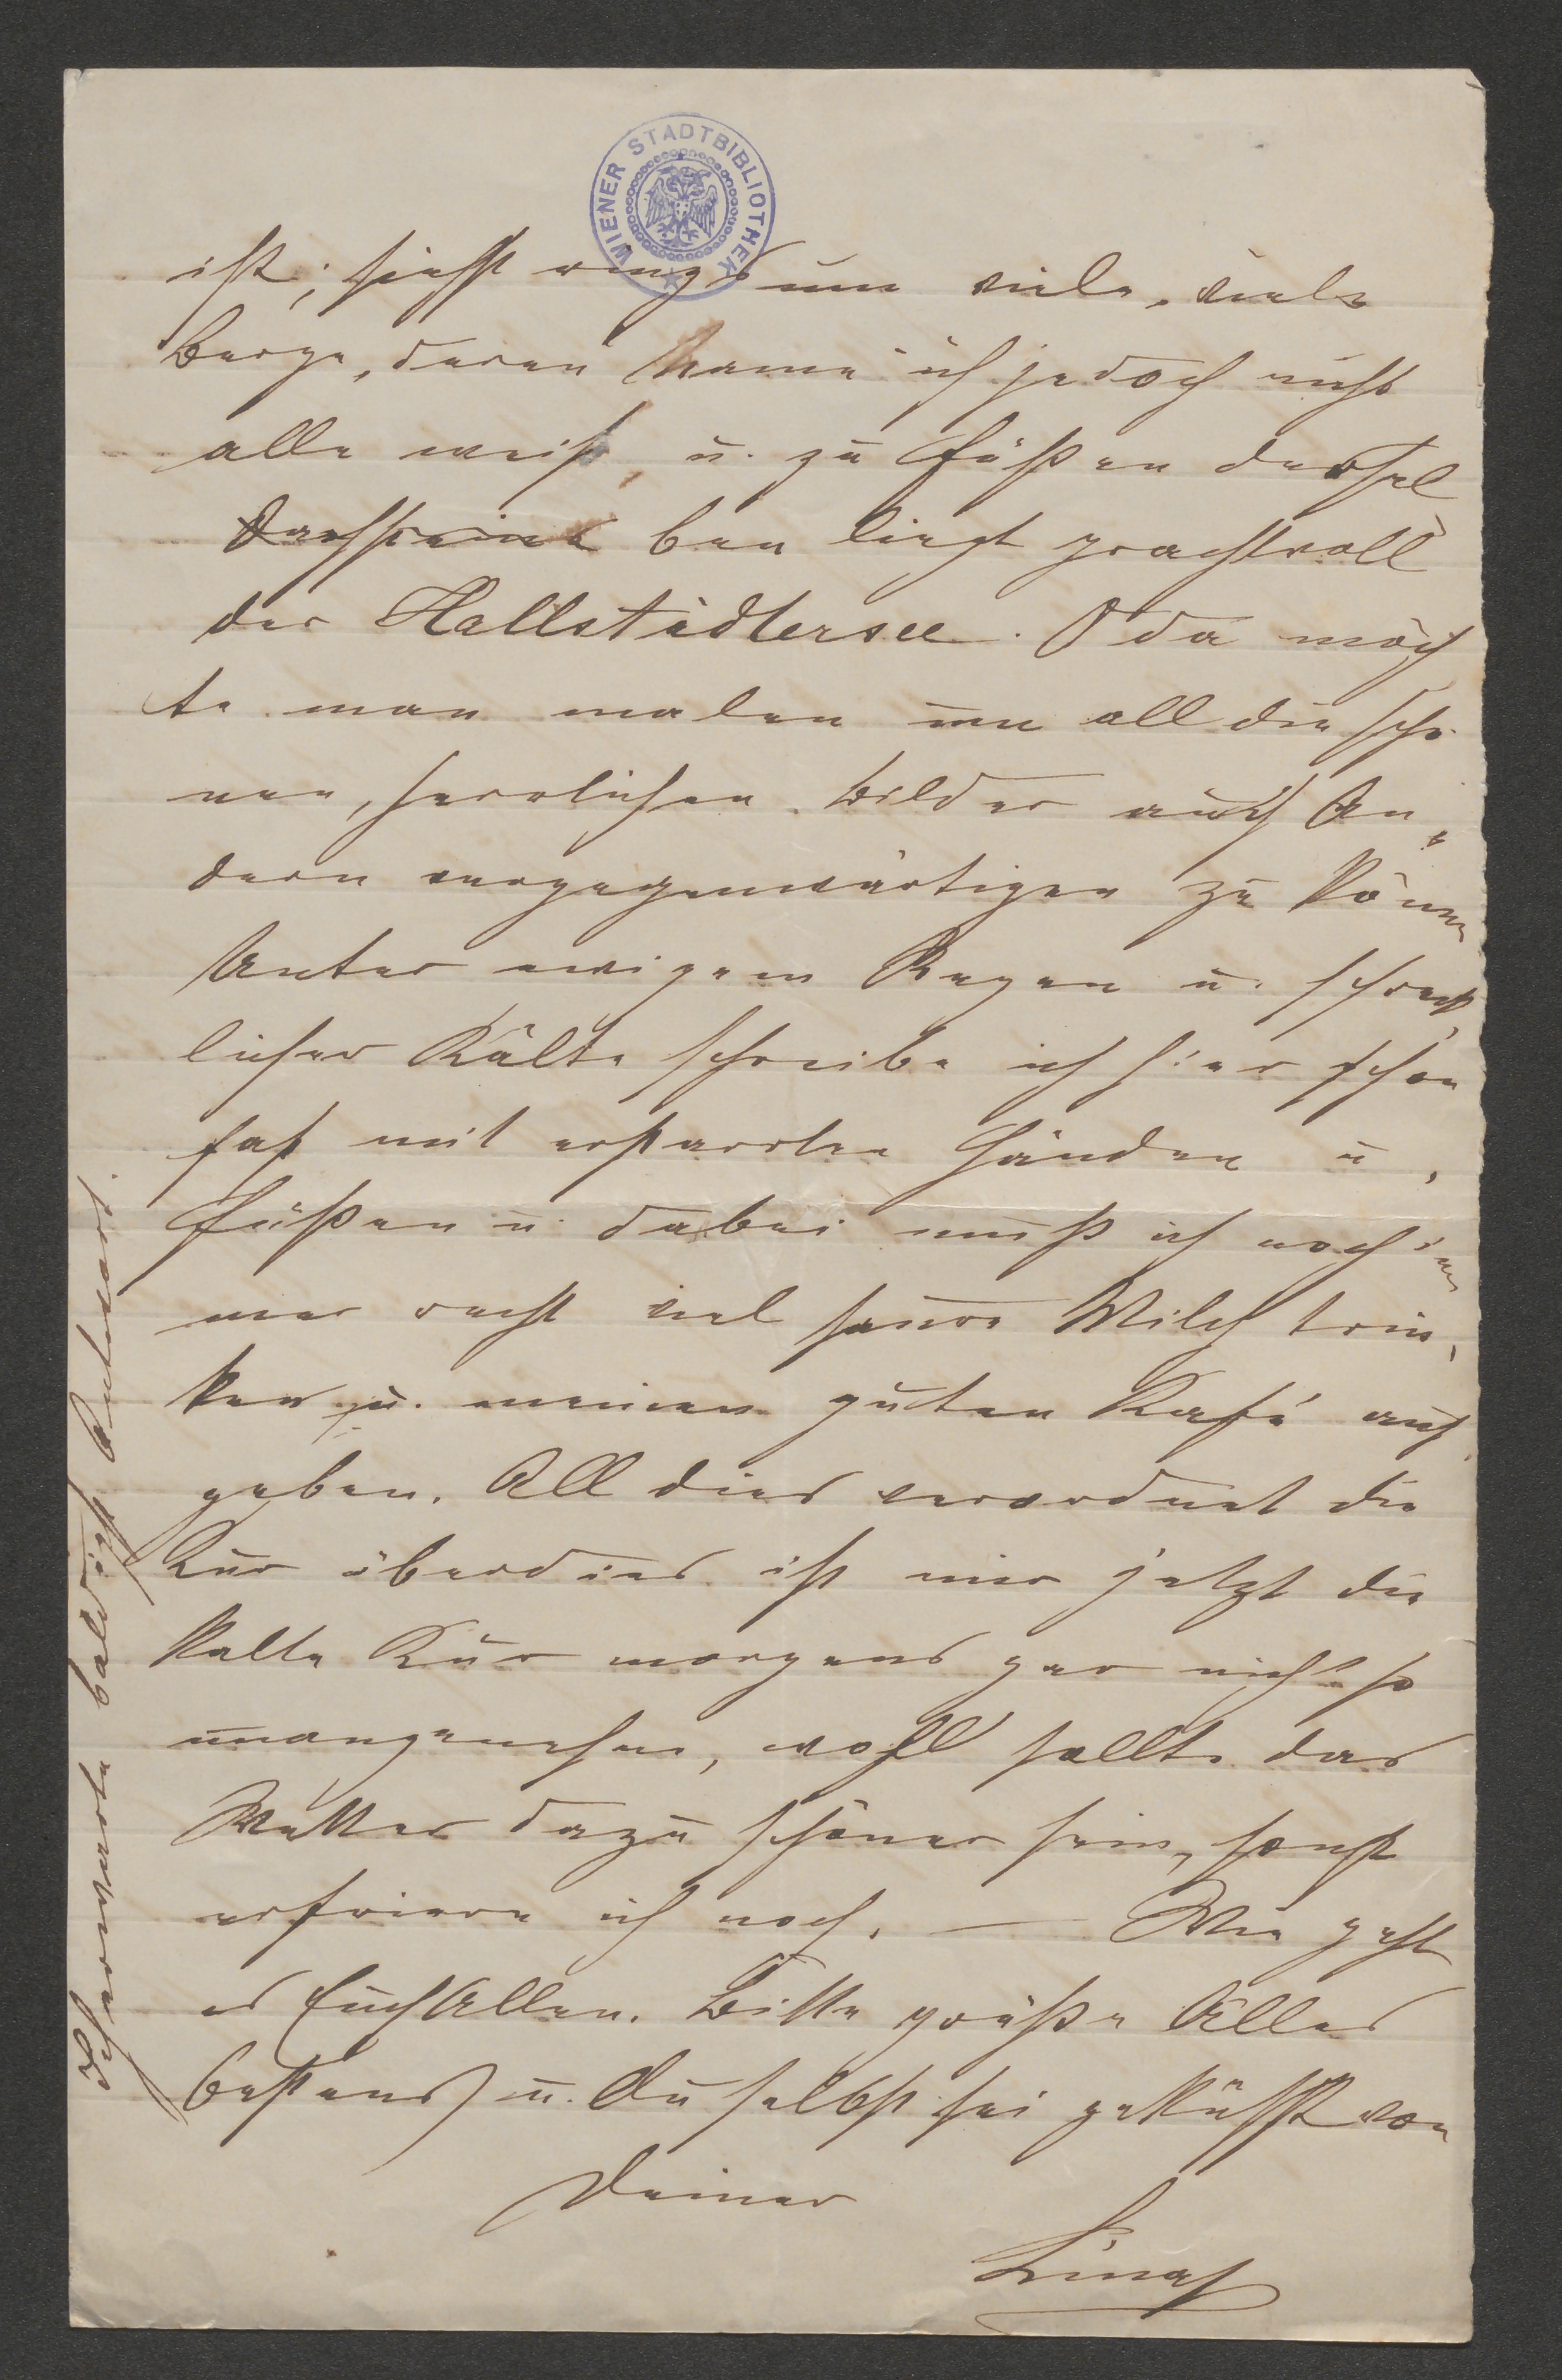 WIENER STADTBIBLIOTHEK
ist; siehst rings um viele, viele
Berge, deren Name ich jedoch nicht
alle weiß, u. zu Füßen dersel
Dachsteines ben liegt prachtvoll
der Hallstädtersee. O da möch
te man malen um all die schö
nen, herrlichen Bilder auch An„
dern vergegenwärtigen zu können
Unter ewigem Regen u. schreck
licher Kälte schreibe ich hier schon
fast mit erstarrten Händen u.
Füßen u. dabei muß ich noch im
mer recht viel saure Milch trin„
ken u. meinen guten Kafé auf
geben. All dies verordnet die
Kur überdies ist mir jetzt die
kalte Kur morgens gar nicht so
unangenehm, wohl sollte das
Wetter dazu schöner sein, sonst
erfriere ich noch. — Wie geht
es Euch Allen. Bitte grüße Alles
bestens u. Du selbst sei geküßt von
Deiner
Lina
baldigst Antwort.